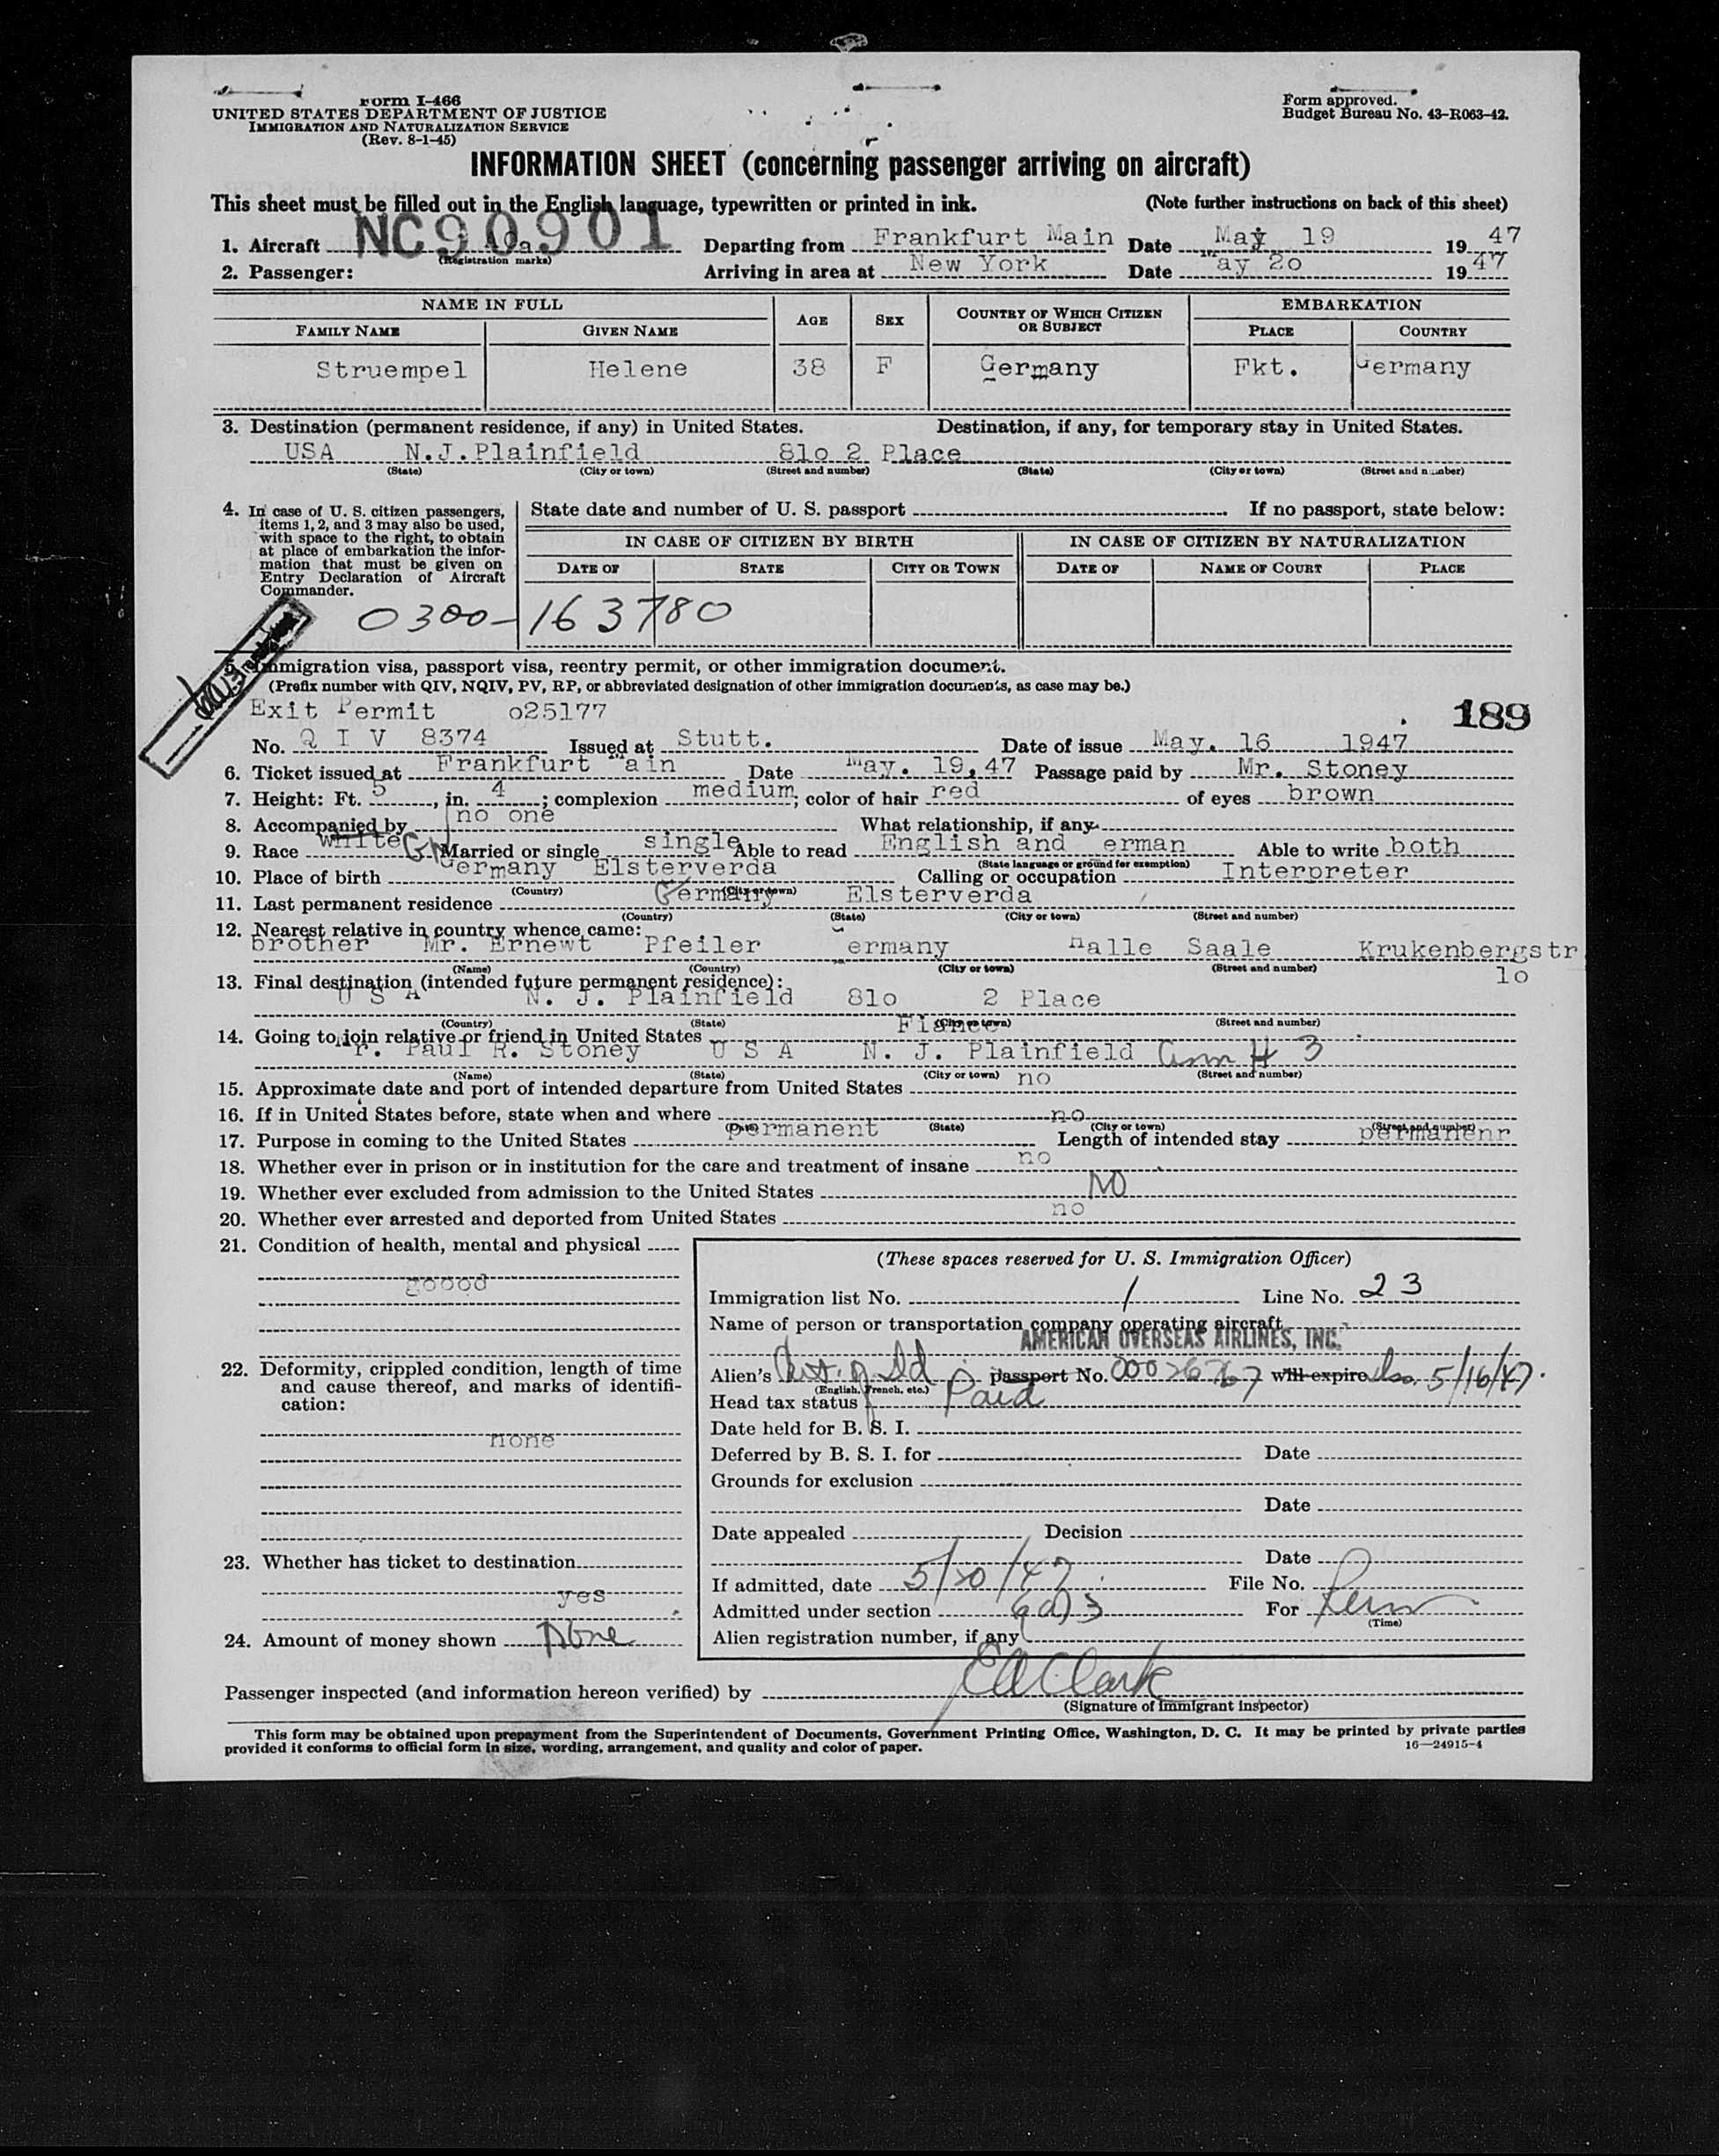 Form I-466
UNITED STATES DEPARTMENT OF JUSTICE
IMMIGRATION AND NATURALIZATION SERVICE
(Rev. 8-1-45)
Form approved.
Budget Bureau No. 43-R063-42.
INFORMATION SHEET (concerning passenger arriving on aircraft)
This sheet must be filled out in the English language, typewritten or printed in ink. (Note further instructions on back of this sheet)
1. Aircraft NC90901 Departing from Frankfurt Main Date May 19 1947
(Registration marks)
2. Passenger: Arriving in area at New York Date May 2o 1947
NAME IN FULL AGE SEX COUNTRY OF WHICH CITIZEN OR SUBJECT EMBARKATION
FAMILY NAME GIVEN NAME PLACE COUNTRY
Struempel Helene 38 F Germany Fkt. Germany
3. Destination (permanent residence, if any) in United States. Destination, if any, for temporary stay in United States.
USA N.J.Plainfield 81o 2 Place
(State) (City or town) (Street and number) (State) (City or town) (Street and number)
4. In case of U. S. citizen passengers, items 1, 2, and 3 may also be used, with space to the right, to obtain at place of embarkation the information that must be given on Entry Declaration of Aircraft Commander.
State date and number of U. S. passport If no passport, state below:
IN CASE OF CITIZEN BY BIRTH IN CASE OF CITIZEN BY NATURALIZATION
DATE OF STATE CITY OR TOWN DATE OF NAME OF COURT PLACE
0300-163780
5. Immigration visa, passport visa, reentry permit, or other immigration document.
(Prefix number with QIV, NQIV, PV, RP, or abbreviated designation of other immigration documents, as case may be.)
Exit Permit o25177 189
No. Q I V 8374 Issued at Stutt. Date of issue May. 16 1947
6. Ticket issued at Frankfurt Main Date May. 19,47 Passage paid by Mr. Stoney
7. Height: Ft. 5, in. 4; complexion medium; color of hair red of eyes brown
8. Accompanied by no one What relationship, if any
9. Race white Married or single single Able to read English and German Able to write both
(State language or ground for exemption)
10. Place of birth Germany Elsterverda Calling or occupation Interpreter
(Country) (City or town)
11. Last permanent residence Germany Elsterverda
(Country) (State) (City or town) (Street and number)
12. Nearest relative in country whence came:
brother Mr. Ernewt Pfeiler Germany Halle Saale Krukenbergstr
1o
(Name) (Country) (City or town) (Street and number)
13. Final destination (intended future permanent residence):
U S A N. J. Plainfield 81o 2 Place
(Country) (State) (City or town) (Street and number)
14. Going to join relative or friend in United States Fiance
Mr. Paul R. Stoney U S A N. J. Plainfield
(Name) (State) (City or town) (Street and number)
15. Approximate date and port of intended departure from United States no
16. If in United States before, state when and where no
(Date) (State) (City or town) (Street and number)
17. Purpose in coming to the United States permanent Length of intended stay permanenr
18. Whether ever in prison or in institution for the care and treatment of insane no
19. Whether ever excluded from admission to the United States NO
20. Whether ever arrested and deported from United States no
21. Condition of health, mental and physical
goood
22. Deformity, crippled condition, length of time and cause thereof, and marks of identification:
none
23. Whether has ticket to destination
yes
24. Amount of money shown None
(These spaces reserved for U. S. Immigration Officer)
Immigration list No. 1 Line No. 23
Name of person or transportation company operating aircraft
AMERICAN OVERSEAS AIRLINES, INC.
Alien's passport No. will expire 5/16/47.
(English, French, etc.)
Head tax status Paid
Date held for B. S. I.
Deferred by B. S. I. for Date
Grounds for exclusion
Date
Date appealed Decision
Date
If admitted, date 5/20/47 File No.
Admitted under section 6(a)3 For Perm
(Time)
Alien registration number, if any
Passenger inspected (and information hereon verified) by EAClark
(Signature of Immigrant inspector)
This form may be obtained upon prepayment from the Superintendent of Documents, Government Printing Office, Washington, D. C. It may be printed by private parties
provided it conforms to official form in size, wording, arrangement, and quality and color of paper. 16—24915-4